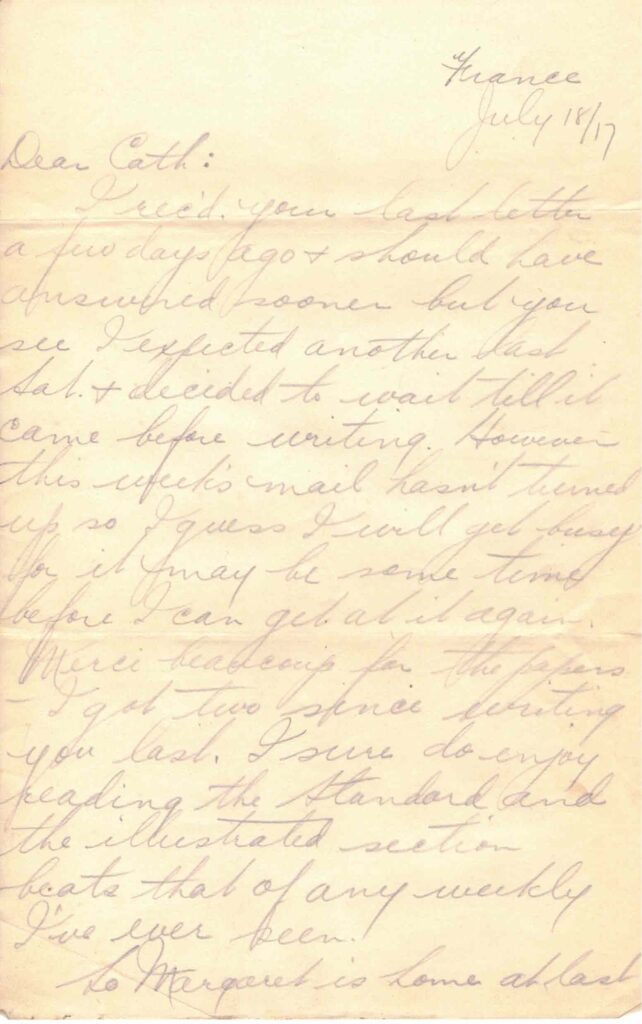 France
July 18/17
Dear Cath:
I rec'd. your last letter
a few days ago & should have
answered sooner but you
see I expected another last
Sat. & decided to wait till it
came before writing. However
this week's mail hasn't turned
up so I guess I will get busy
for it may be some time
before I can get at it again.
Merci beaucoup for the papers
- I got two since writing
you last. I sure do enjoy
reading the Standard and
the illustrated section
beats that of any weekly
I've ever seen.
So Margaret is home at last